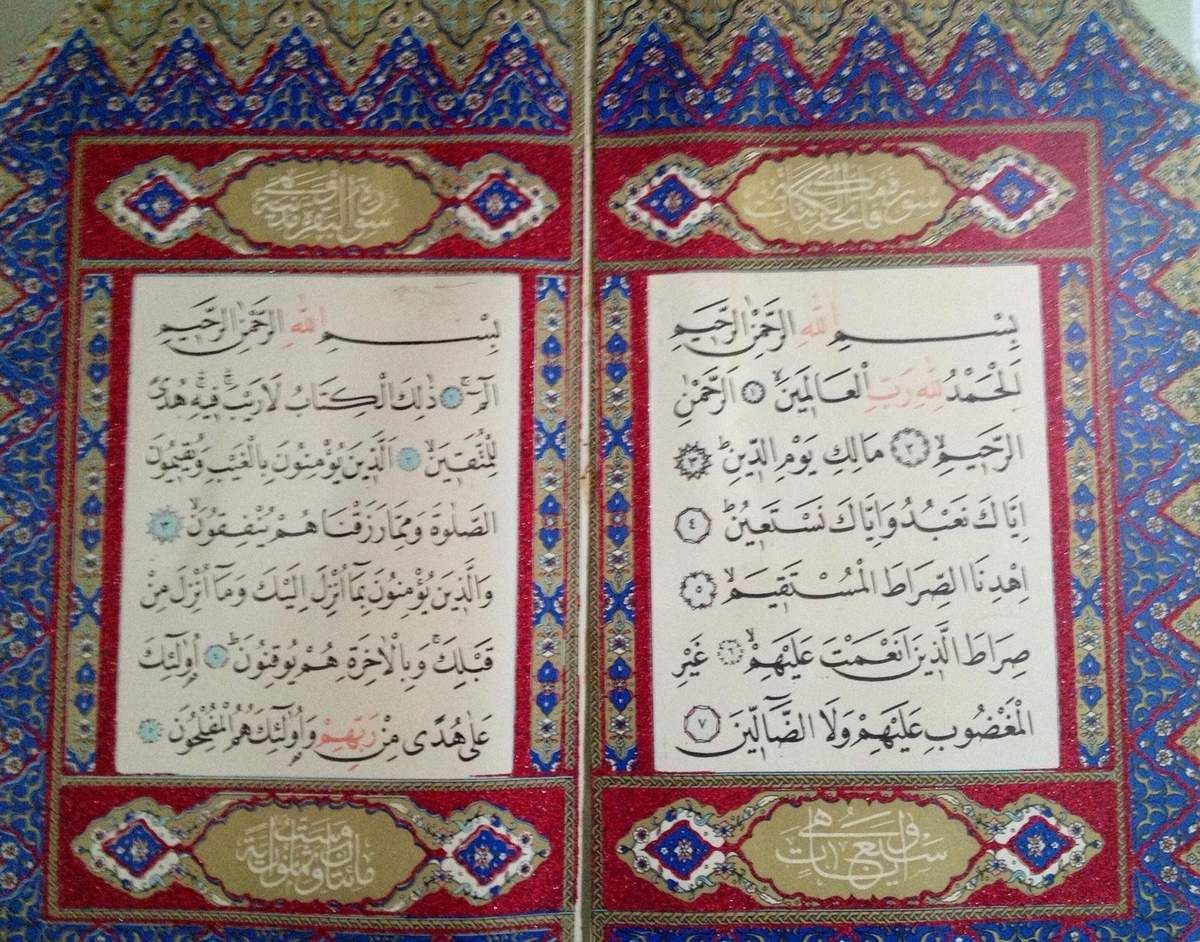 سورة فاتحة الكتاب مكية
بِسْمِ اللهِ الرَّحْمٰنِ الرَّحِيمِ
اَلْحَمْدُ لِلّٰهِ رَبِّ الْعَالَمِينَۙ ١ اَلرَّحْمٰنِ
الرَّحِيمِۙ ٢ مَالِكِ يَوْمِ الدِّينِۜ ٣
اِيَّاكَ نَعْبُدُ وَاِيَّاكَ نَسْتَعِينُۜ ٤
اِهْدِنَا الصِّرَاطَ الْمُسْتَقِيمَۙ ٥
صِرَاطَ الَّذِينَ اَنْعَمْتَ عَلَيْهِمْۙ ٦ غَيْرِ
الْمَغْضُوبِ عَلَيْهِمْ وَلَا الضَّٓالِّينَ ٧
وهي سبع آيات
سورة البقرة مدنية
بِسْمِ اللهِ الرَّحْمٰنِ الرَّحِيمِ
الٓمٓۚ ١ ذٰلِكَ الْكِتَابُ لَا رَيْبَۚۛ فِيهِۚۛ هُدًى
لِلْمُتَّقِينَۙ ٢ اَلَّذِينَ يُؤْمِنُونَ بِالْغَيْبِ وَيُقِيمُونَ
الصَّلٰوةَ وَمِمَّا رَزَقْنَاهُمْ يُنْفِقُونَۙ ٣
وَالَّذِينَ يُؤْمِنُونَ بِمَٓا اُنْزِلَ اِلَيْكَ وَمَٓا اُنْزِلَ مِنْ
قَبْلِكَۚ وَبِالْاٰخِرَةِ هُمْ يُوقِنُونَۜ ٤ اُو۬لٰٓئِكَ
عَلٰى هُدًى مِنْ رَبِّهِمْ وَاُو۬لٰٓئِكَ هُمُ الْمُفْلِحُونَ ٥
مائتان وست وثمانون آية